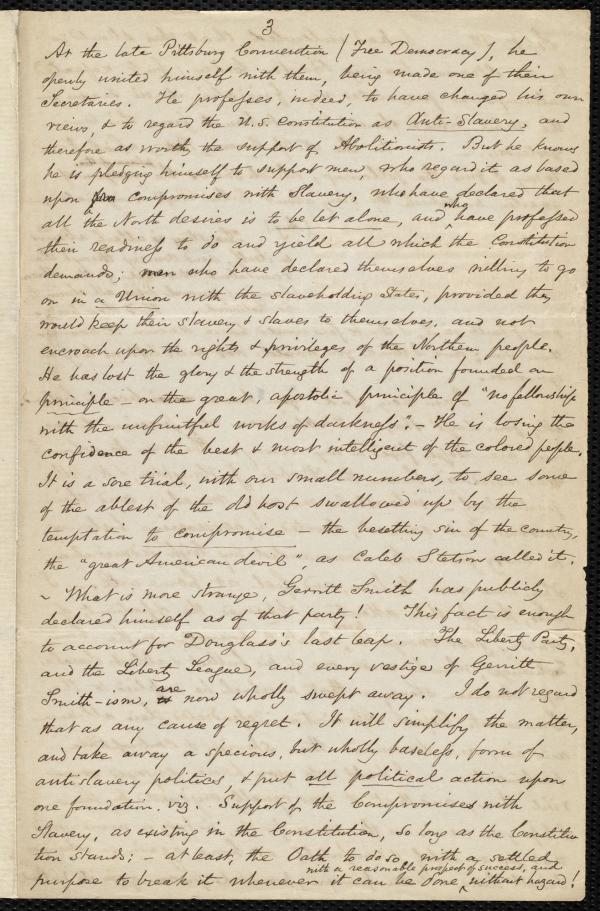 3
At the late Pittsburg Convention (Free Democracy), he
openly united himself with them, being made one of their
Secretaries. He professes, indeed, to have changed his own
views, & to regard the U.S. Constitution as Anti-Slavery, and
therefore as worth the support of Abolitionists. But he knows
he is pledging himself to support men, who regard it as based
upon compromises with Slavery, who have declared that
all the North desires is to be let alone, and who have professed
their readiness to do and yield all which the Constitution
demands; men who have declared themselves willing to go
on in a Union with the slaveholding States, provided they
would keep their slavery & slaves to themselves, and not
encroach upon the rights & privileges of the Northern people.
He has lost the glory & the strength of a position founded on
principle – on the great, apostolic principle of "no fellowship
with the unfruitful works of darkness". – He is losing the
confidence of the best & most intelligent of the colored people.
It is a sore trial, with our small numbers, to see some
of the ablest of the old host swallowed up by the
temptation to compromise – the besetting sin of the country,
the "great American devil", as Caleb Stetson called it.
~ What is more strange, Gerritt Smith has publicly
declared himself as of that party! This fact is enough
to account for Douglass's last leap. The Liberty Party,
and the Liberty League, and every vestige of Gerritt
Smith-ism, are now wholly swept away. I do not regard
that as any cause of regret. It will simplify the matter,
and take away a specious, but wholly baseless, form of
antislavery politics, & put all political action upon
one foundation. viz. Support of the Compromises with
Slavery, as existing in the Constitution, so long as the Constitu
tion stands; – at least, the Oath to do so, with a settled
with a reasonable prospect of success, and
purpose to break it whenever it can be done, without hazard!